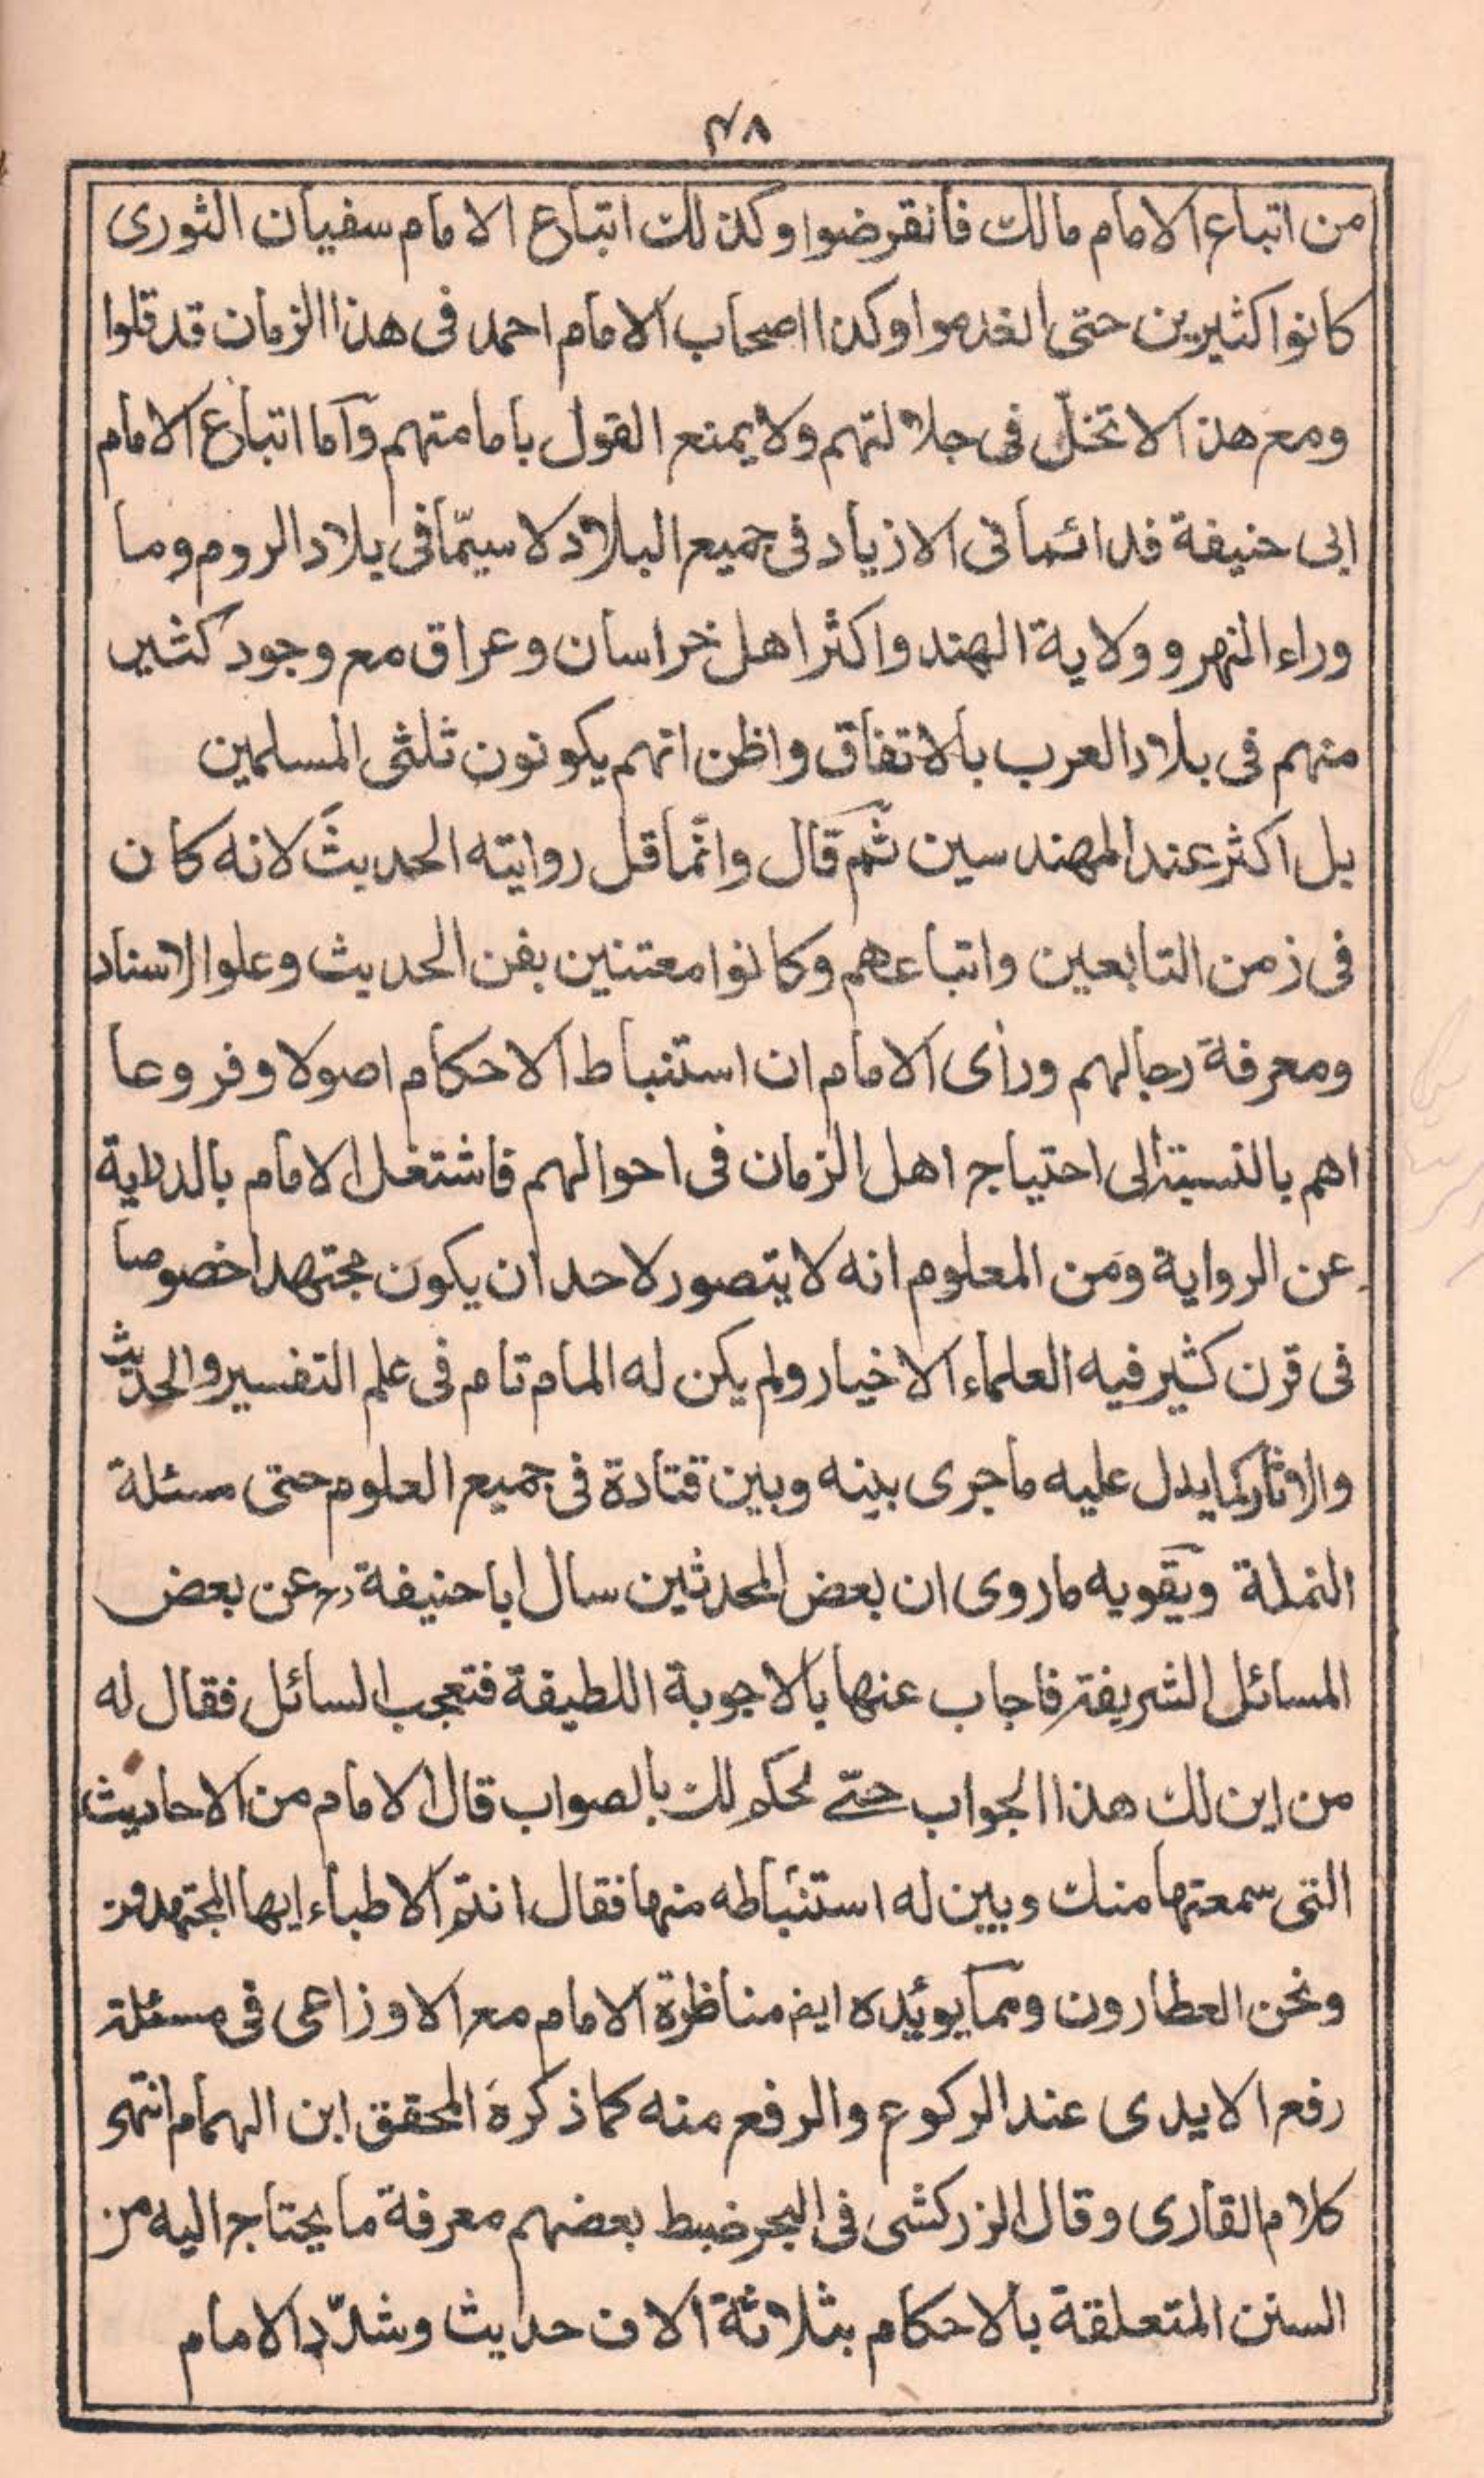 ۴۸
من اتباع الامام مالك فانقرضوا وكذلك اتباع الامام سفيان الثورى
كانوا كثيرين حتى انعدموا وكذا اصحاب الامام احمد فى هذا الزمان قد قلوا
ومع هذا لا تخلّ فى جلالتهم ولا يمنع القول بامامتهم وآما اتباع الامام
ابى حنيفة فدائما فى الازياد فى جميع البلاد لا سيّما فى بلاد الروم وما
وراء النهر وولاية الهند واكثر اهل خراسان وعراق مع وجود كثير
منهم فى بلاد العرب بالاتفاق واظن انهم يكونون ثلثى المسلمين
بل اكثر عند المهندسين ثم قال وانّما قل روايته الحديث لانه كان
فى زمن التابعين واتباعهم وكانوا معتنين بفن الحديث وعلوا لاسناد
ومعرفة رجالهم ورأى الامام ان استنباط الاحكام اصولا وفروعا
اهم بالنسبة الى احتياج اهل الزمان فى احوالهم فاشتغل الامام بالدراية
عن الرواية ومن المعلوم انه لا يتصور لاحد ان يكون مجتهدا خصوصا
فى قرن كثير فيه العلماء الاخيار ولم يكن له المام تام فى علم التفسير والحديث
والاثار كما يدل عليه ما جرى بينه وبين قتادة فى جميع العلوم حتى مسئلة
النملة ويقويه ما روى ان بعض المحدثين سال ابا حنيفة رح عن بعض
المسائل الشريفة فاجاب عنها بالاجوبة اللطيفة فتعجب السائل فقال له
من اين لك هذا الجواب حتّے نحكم لك بالصواب قال الامام من الاحاديث
التى سمعتها منك وبين له استنباطه منها فقال انتم الاطباء ايها المجتهدون
ونحن العطارون ومما يوئيده ايضا مناظرة الامام مع الاوزاعى فى مسئلة
رفع الايدى عند الركوع والرفع منه كما ذكره المحقق ابن الهمام انتهى
كلام القارى وقال الزركشى فى البحر ضبط بعضهم معرفة ما يحتاج اليه من
السنن المتعلقة بالاحكام بثلاثة الاف حديث وشدّد الامام